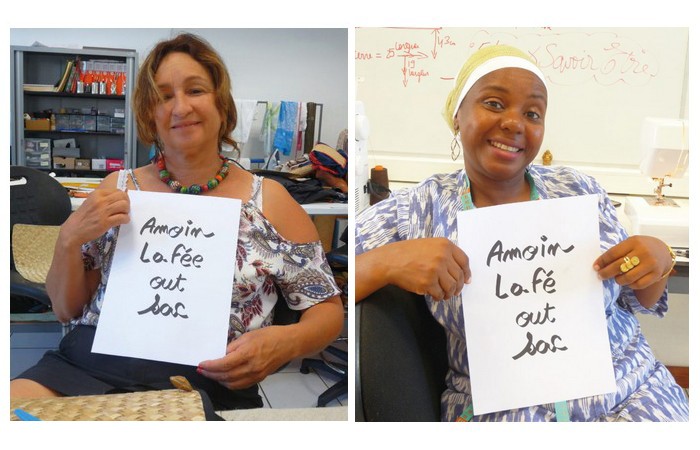 Amoin
La fée
out
sac
Longue
43cm
Savoir Être
Amoin
La fé
out
sac